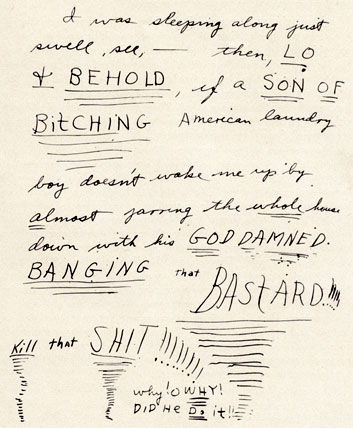 I was sleeping along just
swell, see, — then, LO
& BEHOLD, if a SON OF
BitCHING American laundry
boy doesn't wake me up by
almost jarring the whole house
down with his GOD DAMNED.
BANGING that BAStARD!!!!
Kill that SHIT!!!!!!!
why! O WHY!
DID HE DO it!!